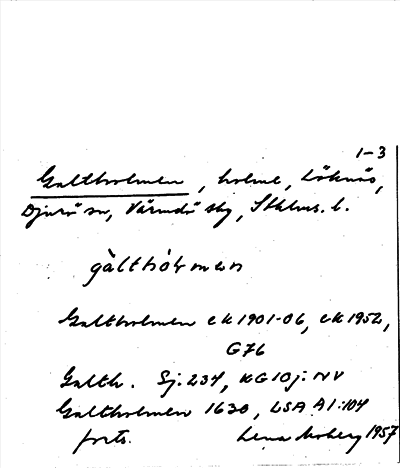 1-3
Galtholmen, holme, Löknäs,
Djurö sn, Värmdö skg, Sthlms. l.
gàlthólmen
Galtholmen ek 1901-06, ek 1952,
G76
Galth. Sj: 234, KG 10j: NV
Galtholmen 1630, LSA A1:104
forts. Lena Moberg 1957